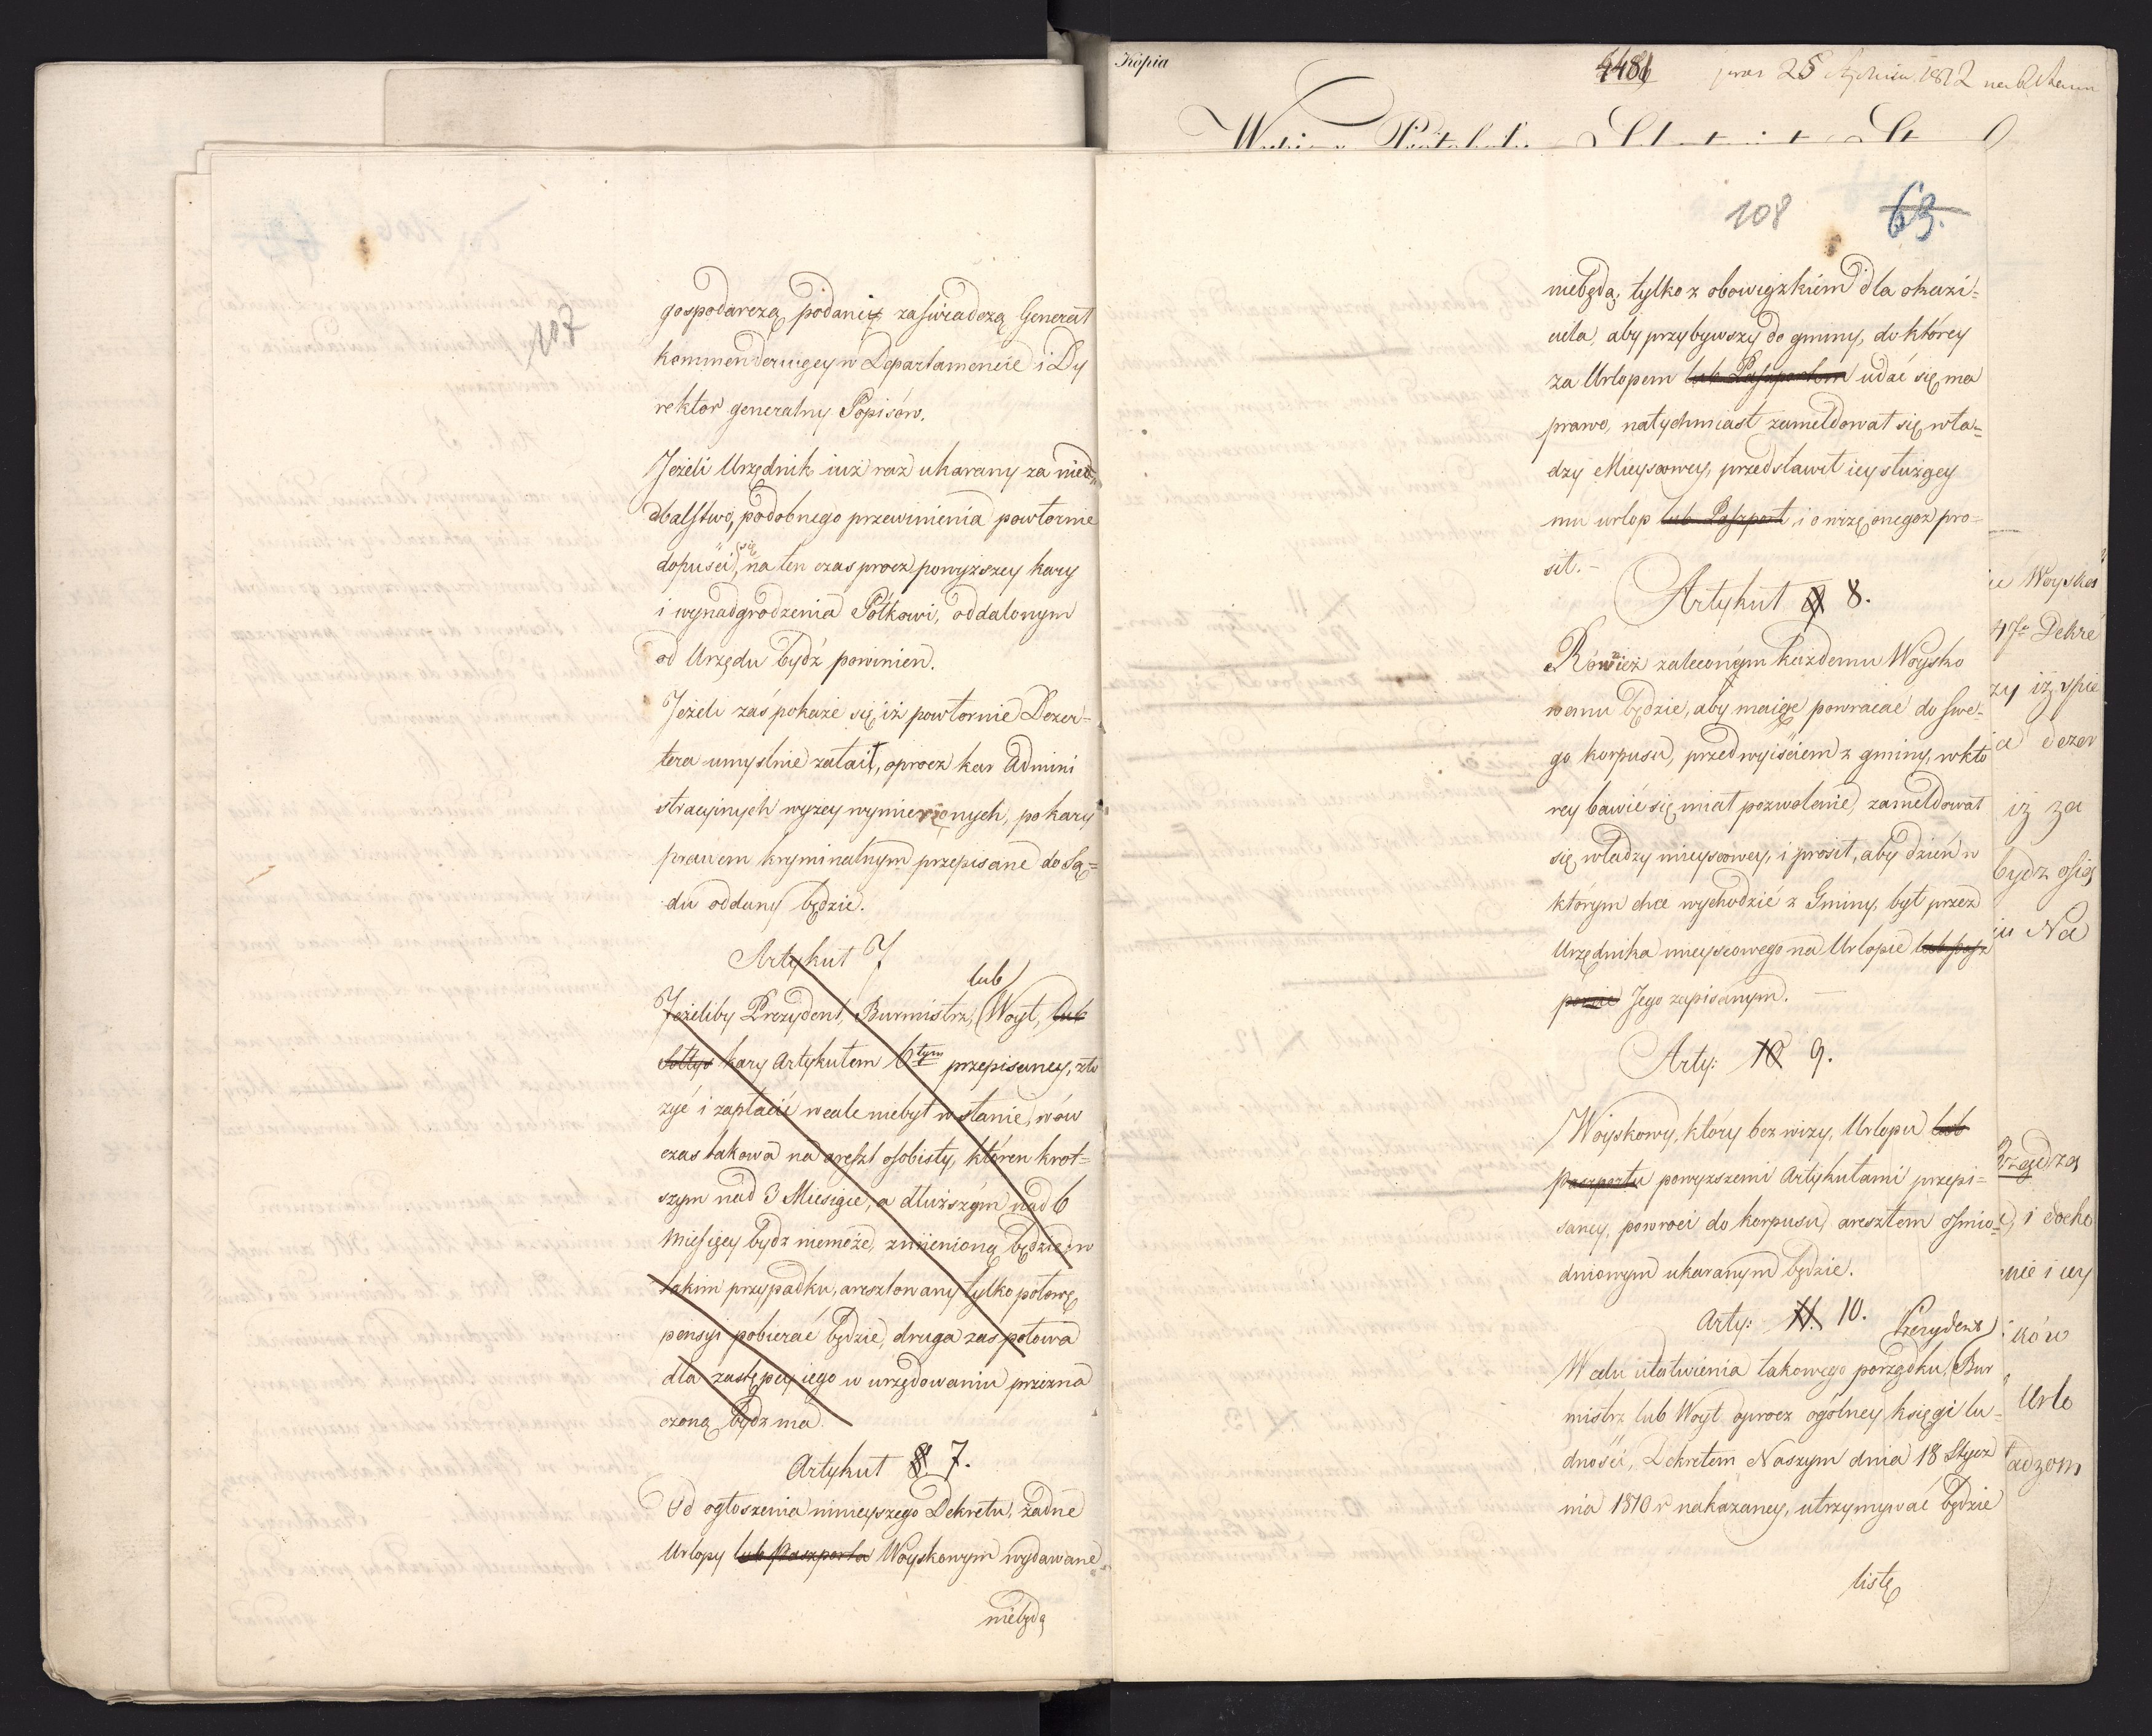 107
gospodarczą podanię zaświadczą Generał
kommenderuiący w Departamencie i Dy
rektor generalny Popisów.
Jeżeli Urzędnik iuż raz ukarany za nied=
balstwo, podobnego przewinienia powtornie
dopuści się, na ten czas procz powyższey kary
i wynadgrodzenia Półkowi, oddalonym
od Urzędu bydź powinien.
Jeżeli zaś pokaże się, iż powtornie Dezer=
tera umyslnie zataił, oprocz kar Admini
stracyinych wyzey wymienionych, po kary
prawem kryminalnym przepisane do Są=
du oddany będzie.
Artykuł 7
lub
Jeżeliby Prezydent, Burmistrz, Woyt, lub
sołtys kary Artykułem 6tym przepisaney, zło
żyć i zapłacić wcale niebył w stanie, wów
czas takowa na areszt osobisty, któren krot=
szym nad 3 Miesiące, a dłuższym nad 6
Miesięcy bydz niemoże, zmienioną będzie; w
takim przypadku, aresztowany tylko połowę
pensyi pobierać będzie, druga zaś połowa
dla zastępcy iego w urzędowaniu przezna
czoną bydz ma.
Artykuł 8 7.
Od ogłoszenia ninieyszego Dekretu, żadne
Urlopy lub Paszporta Woyskowym wydawane
niebędą
Kópia
4481
25 1812
108 63.
niebędą; tylko z obowiązkiem dla okazi=
ciela, aby przybywszy do gminy, do którey
za Urlopem lub Paszportem udać się ma
prawo, natychmiast zameldował się wła=
dzy Mieyscowey, przedstawił iey służący
mu urlop lub Paszport, i o wizę onegoż pro=
sił. –
Artykuł 9 8.
Również zaleconym każdemu Woysko
wemu będzie, aby maiąc powracać do swe=
go korpusu, przed wyiściem z gminy, w któ
rey bawić się miał pozwolenie, zameldował
się władzy mieyscowey, i prosił, aby dzień w
którym chce wychodzić z Gminy, był przez
Urzędnika mieyscowego na Urlopie lub pasz
porcie Jego zapisanym. –
Arty: 10 9.
Woyskowy, który bez wizy, Urlopu lub
Paszportu powyższemi Artykułami przepi=
saney, powroci do korpusu, aresztem ośmio=
dniowym ukaranym będzie.
Arty: 11. 10.
Prezydent
W celu ułatwienia takowego porządku, Bur
mistrz lub Woyt oprocz ogólney księgi lu=
dności, Dekretem Naszym dnia 18 Stycz
nia 1810 r nakazaney, utrzymywać będzie
listę
Dekre
iż za
iu Na
i docho
ków
Urlo